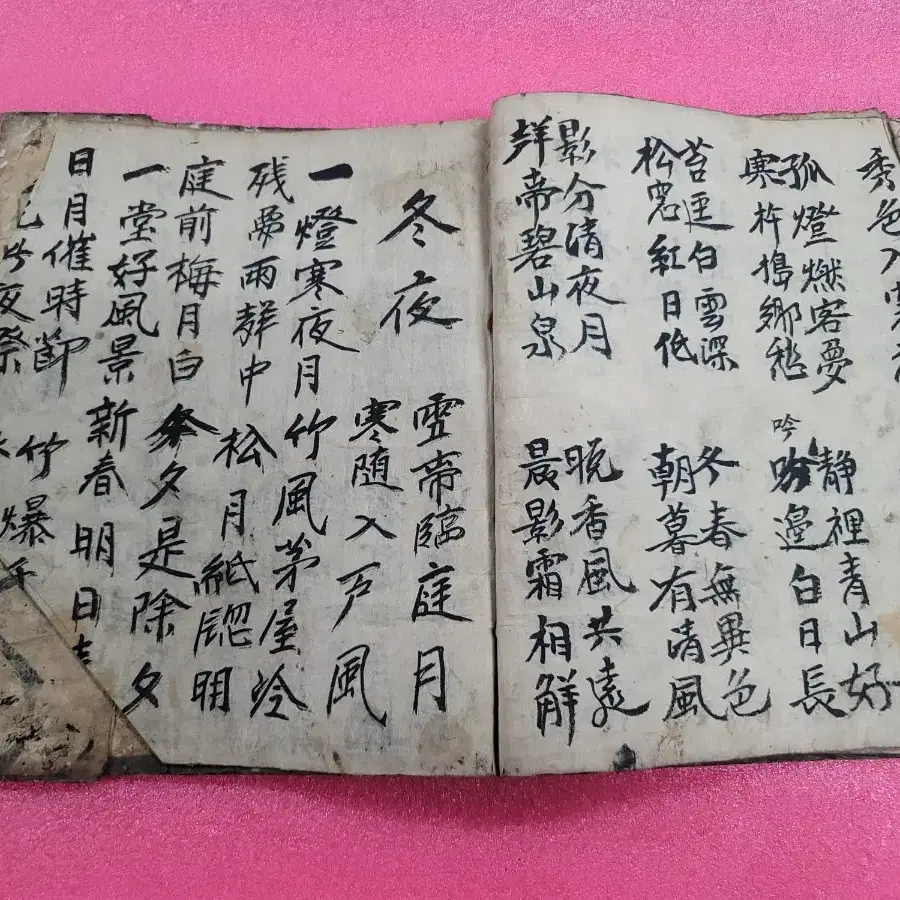 秀色入
孤燈燃客夢
寒杵搗鄉愁
静裡青山好
吟
吟邊白日長
苔逕白雲深
松窓紅日低
冬春無異色
朝暮有清風
影分清夜月
聲帝碧山泉
晚香風共遠
晨影霜相鮮
冬夜
帝臨庭月
寒随入戸風
一燈寒夜月
残夢雨聲中
竹風茅屋冷
松月紙窓明
庭前梅月白
一堂好風景
夕是除夕
新春明日
日月催時節
夜
竹爆千